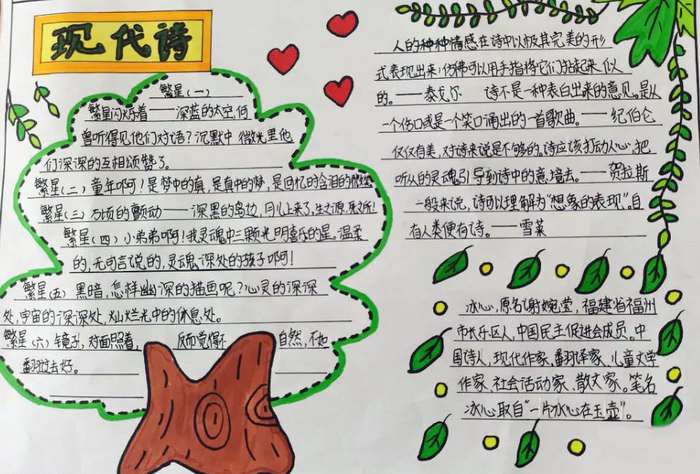 现代诗
繁星（一）
繁星闪烁着——深蓝的太空，何
曾听得见他们对话？沉默中，微光里他
们深深的互相颂赞了。
繁星（二）童年啊！是梦中的真，是真中的梦，是回忆时含泪的微笑
繁星（三）万顷的颤动——深黑的岛边，月儿上来了，生之源，死之所！
繁星（四）小弟弟啊！我灵魂中三颗光明喜乐的星，温柔
的，无可言说的，灵魂深处的孩子啊！
繁星（五）黑暗，怎样幽深的描画呢？心灵的深深
处，宇宙的深深处，灿烂光中的休息处。
繁星（六）镜子，对面照着，反而觉得不自然，不如
翻转过去好。
人的种种情感在诗中以极其完美的形
式表现出来，仿佛可以用手指将它们拈起来似
的。——泰戈尔 诗不是一种表白出来的意见。是从
一个伤口或是一个笑口涌出的一首歌曲。——纪伯仑
仅仅有美，对诗来说是不够的。诗应该打动人心，把
听众的灵魂引导到诗中的意境去。——贺拉斯
一般来说，诗可以理解为“想象的表现”，自
有人类便有诗。——雪莱
冰心，原名谢婉莹，福建省福州
市长乐区人，中国民主促进会成员。中
国诗人，现代作家、翻译家、儿童文学
作家、社会活动家、散文家。笔名
冰心取自“一片冰心在玉壶”。